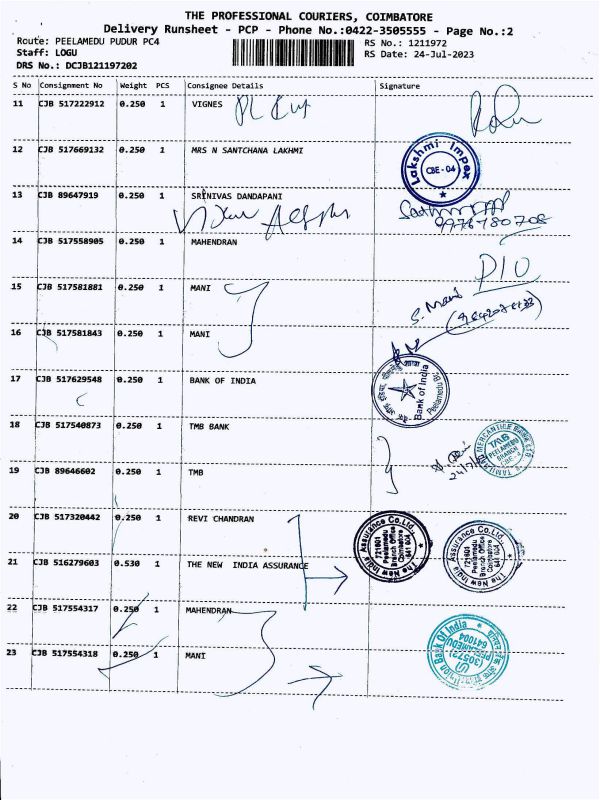 THE PROFESSIONAL COURIERS, COIMBATORE
Delivery Runsheet - PCP - Phone No.:0422-3505555 - Page No.:2
Route: PEELAMEDU PUDUR PC4 RS No.: 1211972
Staff: LOGU RS Date: 24-Jul-2023
DRS No.: DCJB121197202
S No Consignment No Weight PCS Consignee Details Signature
11 CJB 517222912 0.250 1 VIGNES
12 CJB 517669132 0.250 1 MRS N SANTCHANA LAKHMI
Lakshmi Impex
CBE - 04
13 CJB 89647919 0.250 1 SRINIVAS DANDAPANI
9776780708
14 CJB 517558905 0.250 1 MAHENDRAN
15 CJB 517581881 0.250 1 MANI
S. Mani
16 CJB 517581843 0.250 1 MANI
17 CJB 517629548 0.250 1 BANK OF INDIA
Bank of India
Peelamedu
18 CJB 517540873 0.250 1 TMB BANK
TMB
PEELAMEDU
BRANCH
19 CJB 89646602 0.250 1 TMB
20 CJB 517320442 0.250 1 REVI CHANDRAN
The New India Assurance Co.Ltd.,
721601
Peelamedu
Branch Office
Coimbatore
641 004
The New India Assurance Co.Ltd.,
721601
Peelamedu
Branch Office
Coimbatore
641 004
21 CJB 516279603 0.530 1 THE NEW INDIA ASSURANCE
22 CJB 517554317 0.250 1 MAHENDRAN
Union Bank Of India
(30572)
PEELAMEDU
641004
23 CJB 517554318 0.250 1 MANI